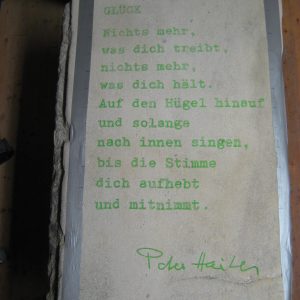 GLÜCK
Nichts mehr,
was dich treibt,
nichts mehr,
was dich hält.
Auf den Hügel hinauf
und solange
nach innen singen,
bis die Stimme
dich aufhebt
und mitnimmt.
Peter